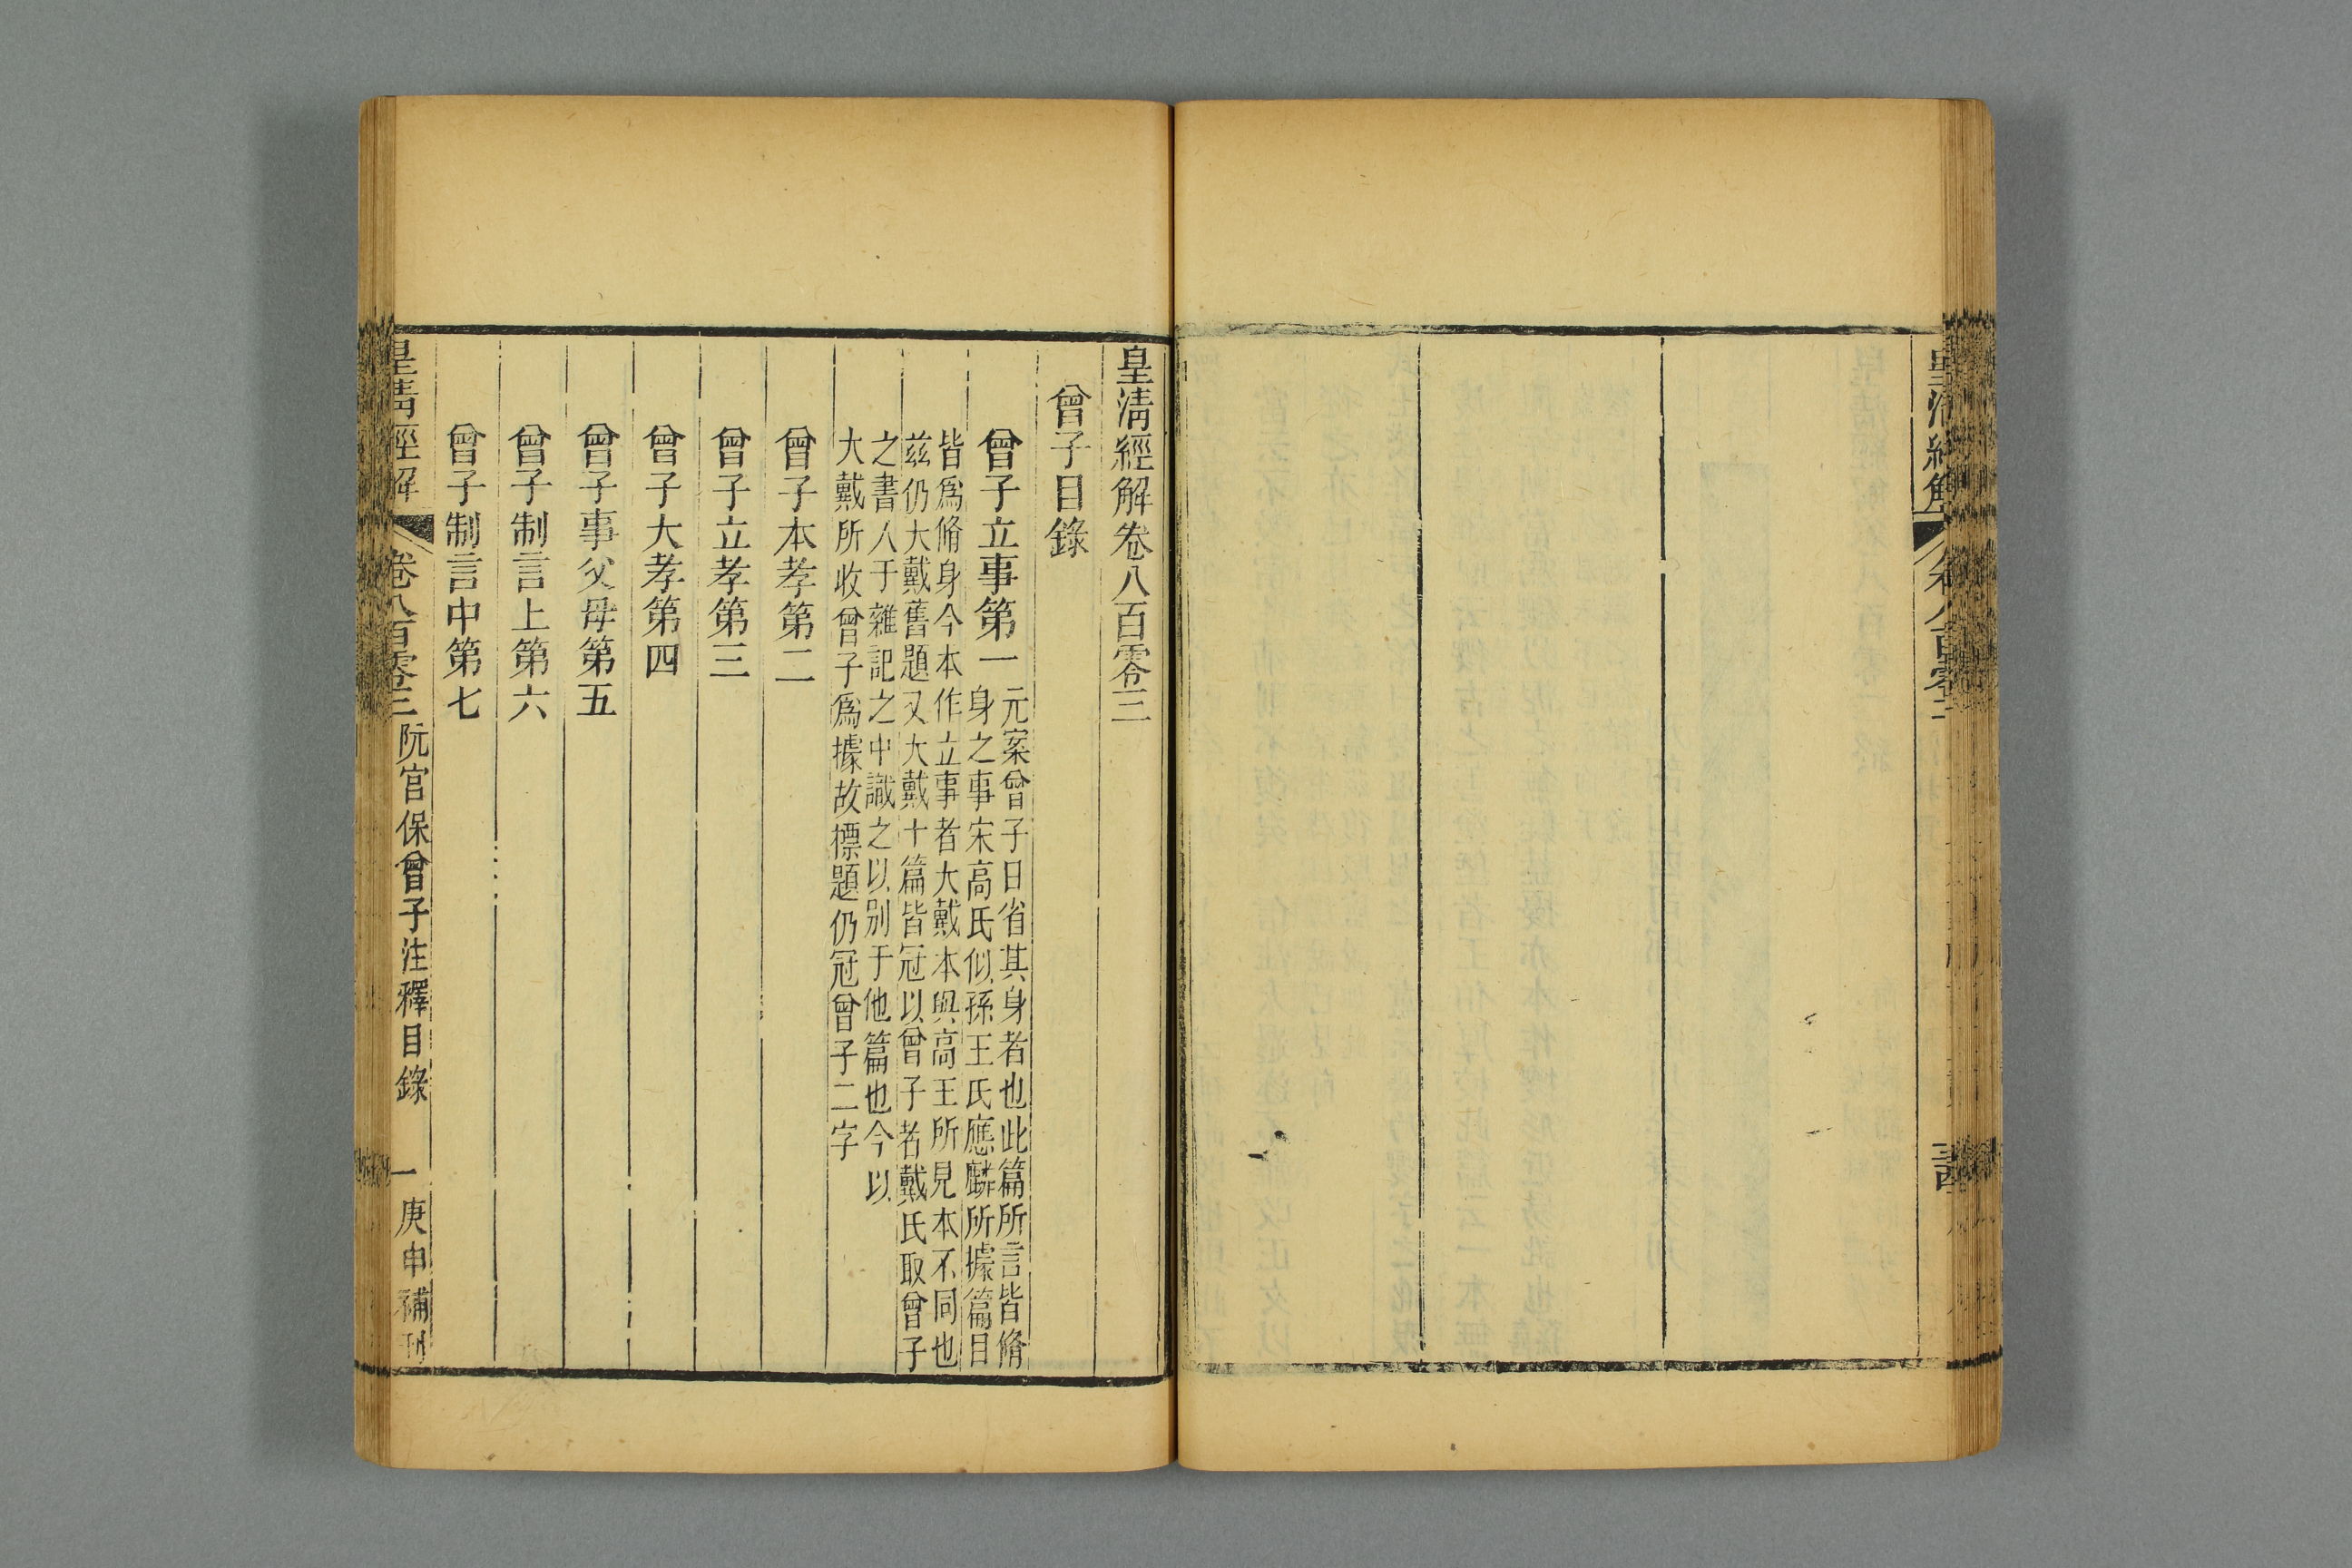 皇清經解
皇清經解卷八百零三
曾子目錄
曾子立事第一
元案曾子日省其身者也此篇所言皆脩
身之事宋高氏似孫王氏應麟所據篇目
皆爲脩身今本作立事者大戴本與高王所見本不同也
茲仍大戴舊題又大戴十篇皆冠以曾子者戴氏取曾子
之書人于雜記之中識之以別于他篇也今以
大戴所收曾子爲據故標題仍冠曾子二字
曾子本孝第二
曾子立孝第三
曾子大孝第四
曾子事父母第五
曾子制言上第六
曾子制言中第七
皇清經解 卷八百零三 阮宮保曾子注釋目錄 一 庚申補刊